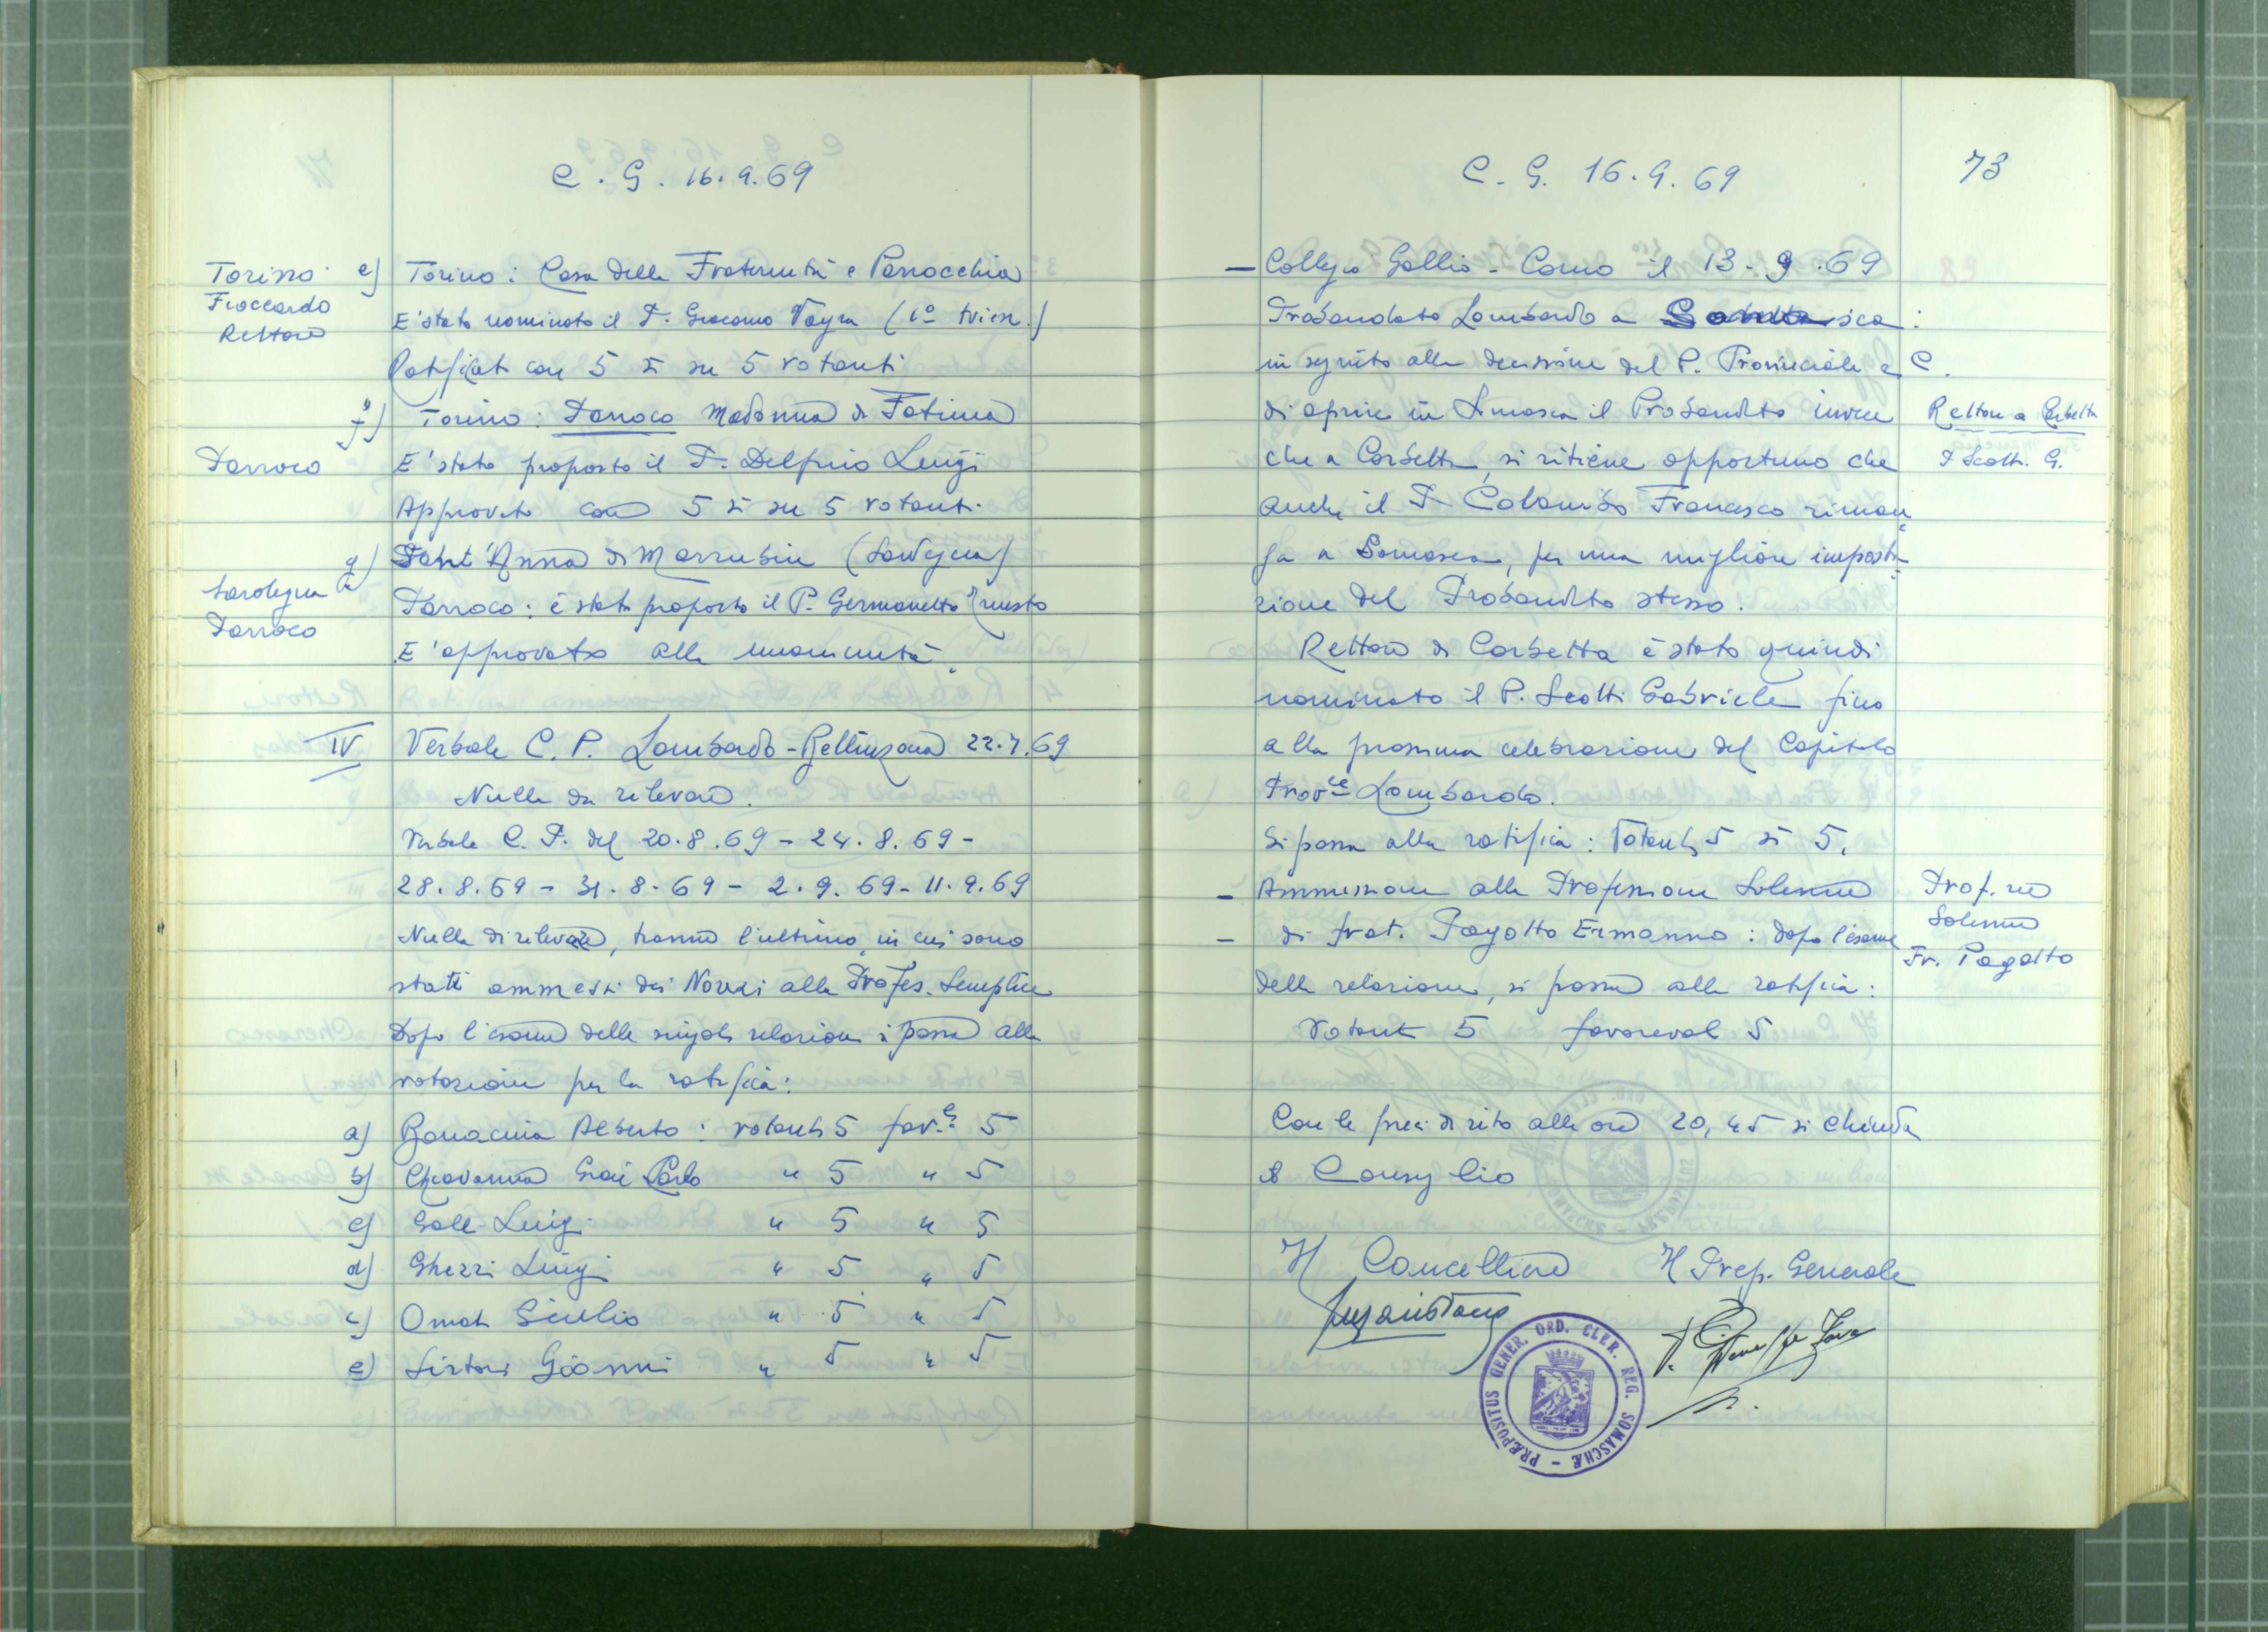 C. G. 16.9.69
Torino
Fioccardo
Rettore
e) Torino: Casa della Fraternità e Parrocchia
E' stato nominato il P. Giacomo Vayra (1° trien.)
Ratificato con 5 sì su 5 votanti
Parroco
f) Torino: Parroco Madonna di Fatima
E' stato proposto il P. Delfino Luigi
Approvato con 5 sì su 5 votanti.
Sardegna
Parroco
g) Sant'Anna di Marrubiu (Sardegna)
Parroco: è stato proposto il P. Germanetto Ernesto
E' approvato alla unanimità.
IV Verbale C. P. Lombardo - Bellinzona 22.7.69
Nulla da rilevare.
Verbale C. P. del 20.8.69 - 24.8.69 -
28.8.69 - 31.8.69 - 2.9.69 - 11.9.69
Nulla di rilevare, tranne l'ultimo, in cui sono
stati ammessi dei Novizi alla Profes. Semplice
Dopo l'esame delle singole relazioni si passa alla
votazione per la ratifica:
a) Bonacina Alberto: votanti 5 fav.li 5
b) Chiavenna Gian Carlo " 5 " 5
c) Galli Luigi " 5 " 5
d) Ghezzi Luigi " 5 " 5
e) Omati Giulio " 5 " 5
e) Sirtori Gianni " 5 " 5
C. G. 16.9.69
73
— Collegio Gallio - Como il 13.9.69
Probandato Lombardo a Somasca:
in seguito alla decisione del P. Provinciale e C.
di aprire in Somasca il Probandato invece
che a Corbetta, si ritiene opportuno che
anche il P. Colombo Francesco riman
ga a Somasca, per una migliore imposta
zione del Probandato stesso.
Rettore a Corbetta
P. Scotti G.
Rettore di Corbetta è stato quindi
nominato il P. Scotti Gabriele fino
alla prossima celebrazione del Capitolo
Prov.le Lombardo.
Si passa alla ratifica: Votanti 5 sì 5.
– Ammissione alla Professione Solenne
– di frat. Pagotto Ermanno: dopo l'esame
della relazione, si passa alla ratifica:
Votanti 5 favorevoli 5
Prof. ne
Solenne
Fr. Pagotto
Con le preci di rito alle ore 20,45 si chiude
il Consiglio
Il Cancelliere Il Prep. Generale
PRÆPOSITUS GENER. ORD. CLER. REG. SOMASCHÆ –